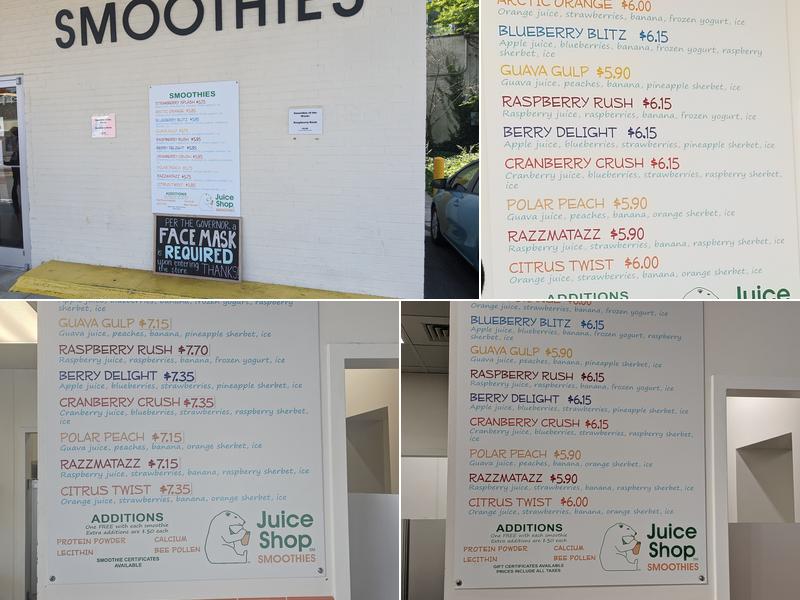 SMOOTHIES
SMOOTHIES
STRAWBERRY SPLASH
ARCTIC ORANGE
BLUEBERRY BLITZ
GUAVA GULP
RASPBERRY RUSH
BERRY DELIGHT
CRANBERRY CRUSH
POLAR PEACH
RAZZMATAZZ
CITRUS TWIST
ADDITIONS
Juice
Shop
SMOOTHIES
Raspberry Rush
PER THE GOVERNOR, a
FACE MASK
is REQUIRED
upon entering
the store THANKS
ARCTIC ORANGE $6.00
Orange juice, strawberries, banana, frozen yogurt, ice
BLUEBERRY BLITZ $6.15
Apple juice, blueberries, banana, frozen yogurt, raspberry
sherbet, ice
GUAVA GULP $5.90
Guava juice, peaches, banana, pineapple sherbet, ice
RASPBERRY RUSH $6.15
Raspberry juice, raspberries, banana, frozen yogurt, ice
BERRY DELIGHT $6.15
Apple juice, blueberries, strawberries, pineapple sherbet, ice
CRANBERRY CRUSH $6.15
Cranberry juice, blueberries, strawberries, raspberry sherbet,
ice
POLAR PEACH $5.90
Guava juice, peaches, banana, orange sherbet, ice
RAZZMATAZZ $5.90
Raspberry juice, strawberries, banana, raspberry sherbet, ice
CITRUS TWIST $6.00
Orange juice, strawberries, banana, orange sherbet, ice
ADDITIONS
Juice
Apple juice, blueberries, banana, frozen yogurt, raspberry
sherbet, ice
GUAVA GULP $7.15
Guava juice, peaches, banana, pineapple sherbet, ice
RASPBERRY RUSH $7.70
Raspberry juice, raspberries, banana, frozen yogurt, ice
BERRY DELIGHT $7.35
Apple juice, blueberries, strawberries, pineapple sherbet, ice
CRANBERRY CRUSH $7.35
Cranberry juice, blueberries, strawberries, raspberry sherbet,
ice
POLAR PEACH $7.15
Guava juice, peaches, banana, orange sherbet, ice
RAZZMATAZZ $7.15
Raspberry juice, strawberries, banana, raspberry sherbet, ice
CITRUS TWIST $7.35
Orange juice, strawberries, banana, orange sherbet, ice
ADDITIONS
One FREE with each smoothie
Extra additions are $.50 each
PROTEIN POWDER CALCIUM
LECITHIN BEE POLLEN
SMOOTHIE CERTIFICATES
AVAILABLE
Juice
Shop
SMOOTHIES
Orange juice, strawberries, banana, frozen yogurt, ice
BLUEBERRY BLITZ $6.15
Apple juice, blueberries, banana, frozen yogurt, raspberry
sherbet, ice
GUAVA GULP $5.90
Guava juice, peaches, banana, pineapple sherbet, ice
RASPBERRY RUSH $6.15
Raspberry juice, raspberries, banana, frozen yogurt, ice
BERRY DELIGHT $6.15
Apple juice, blueberries, strawberries, pineapple sherbet, ice
CRANBERRY CRUSH $6.15
Cranberry juice, blueberries, strawberries, raspberry sherbet,
ice
POLAR PEACH $5.90
Guava juice, peaches, banana, orange sherbet, ice
RAZZMATAZZ $5.90
Raspberry juice, strawberries, banana, raspberry sherbet, ice
CITRUS TWIST $6.00
Orange juice, strawberries, banana, orange sherbet, ice
ADDITIONS
One FREE with each smoothie
Extra additions are $.50 each
PROTEIN POWDER CALCIUM
LECITHIN BEE POLLEN
GIFT CERTIFICATES AVAILABLE
PRICES INCLUDE ALL TAXES
Juice
Shop
SMOOTHIES